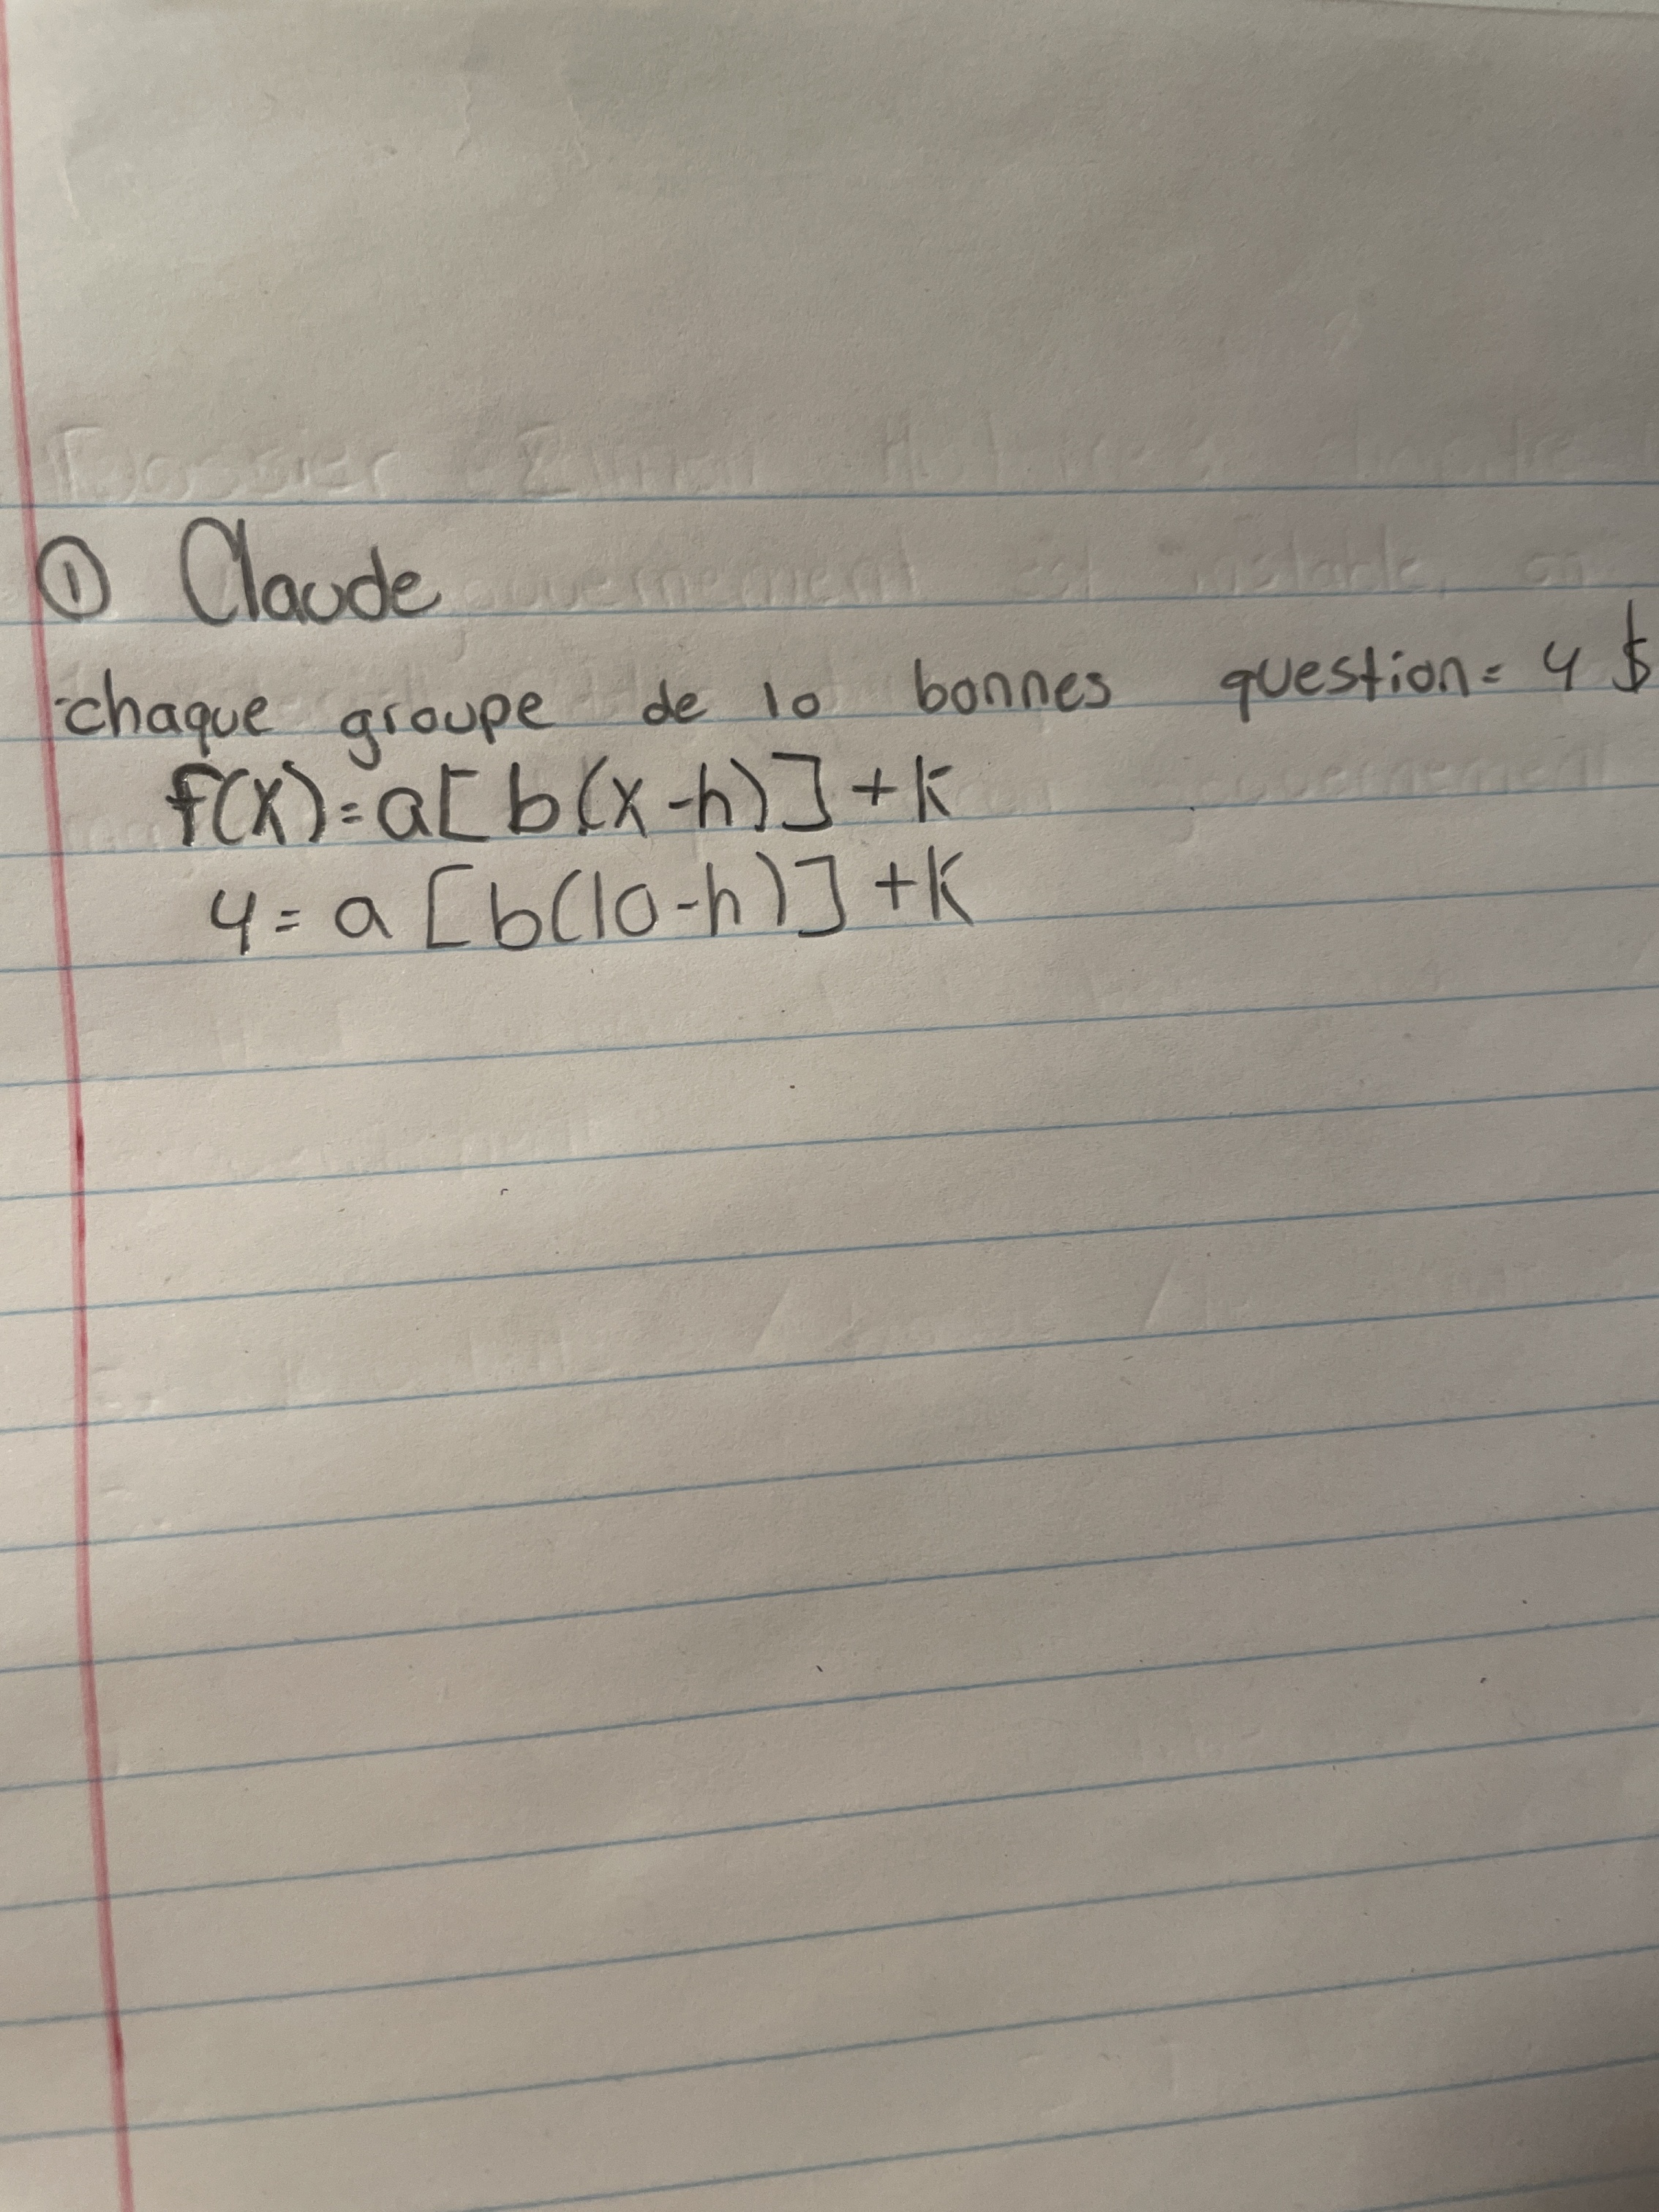 ① Claude
-chaque groupe de 10 bonnes question = 4 $
f(x) = a[b(x-h)] + k
4 = a [b(10-h)] + k